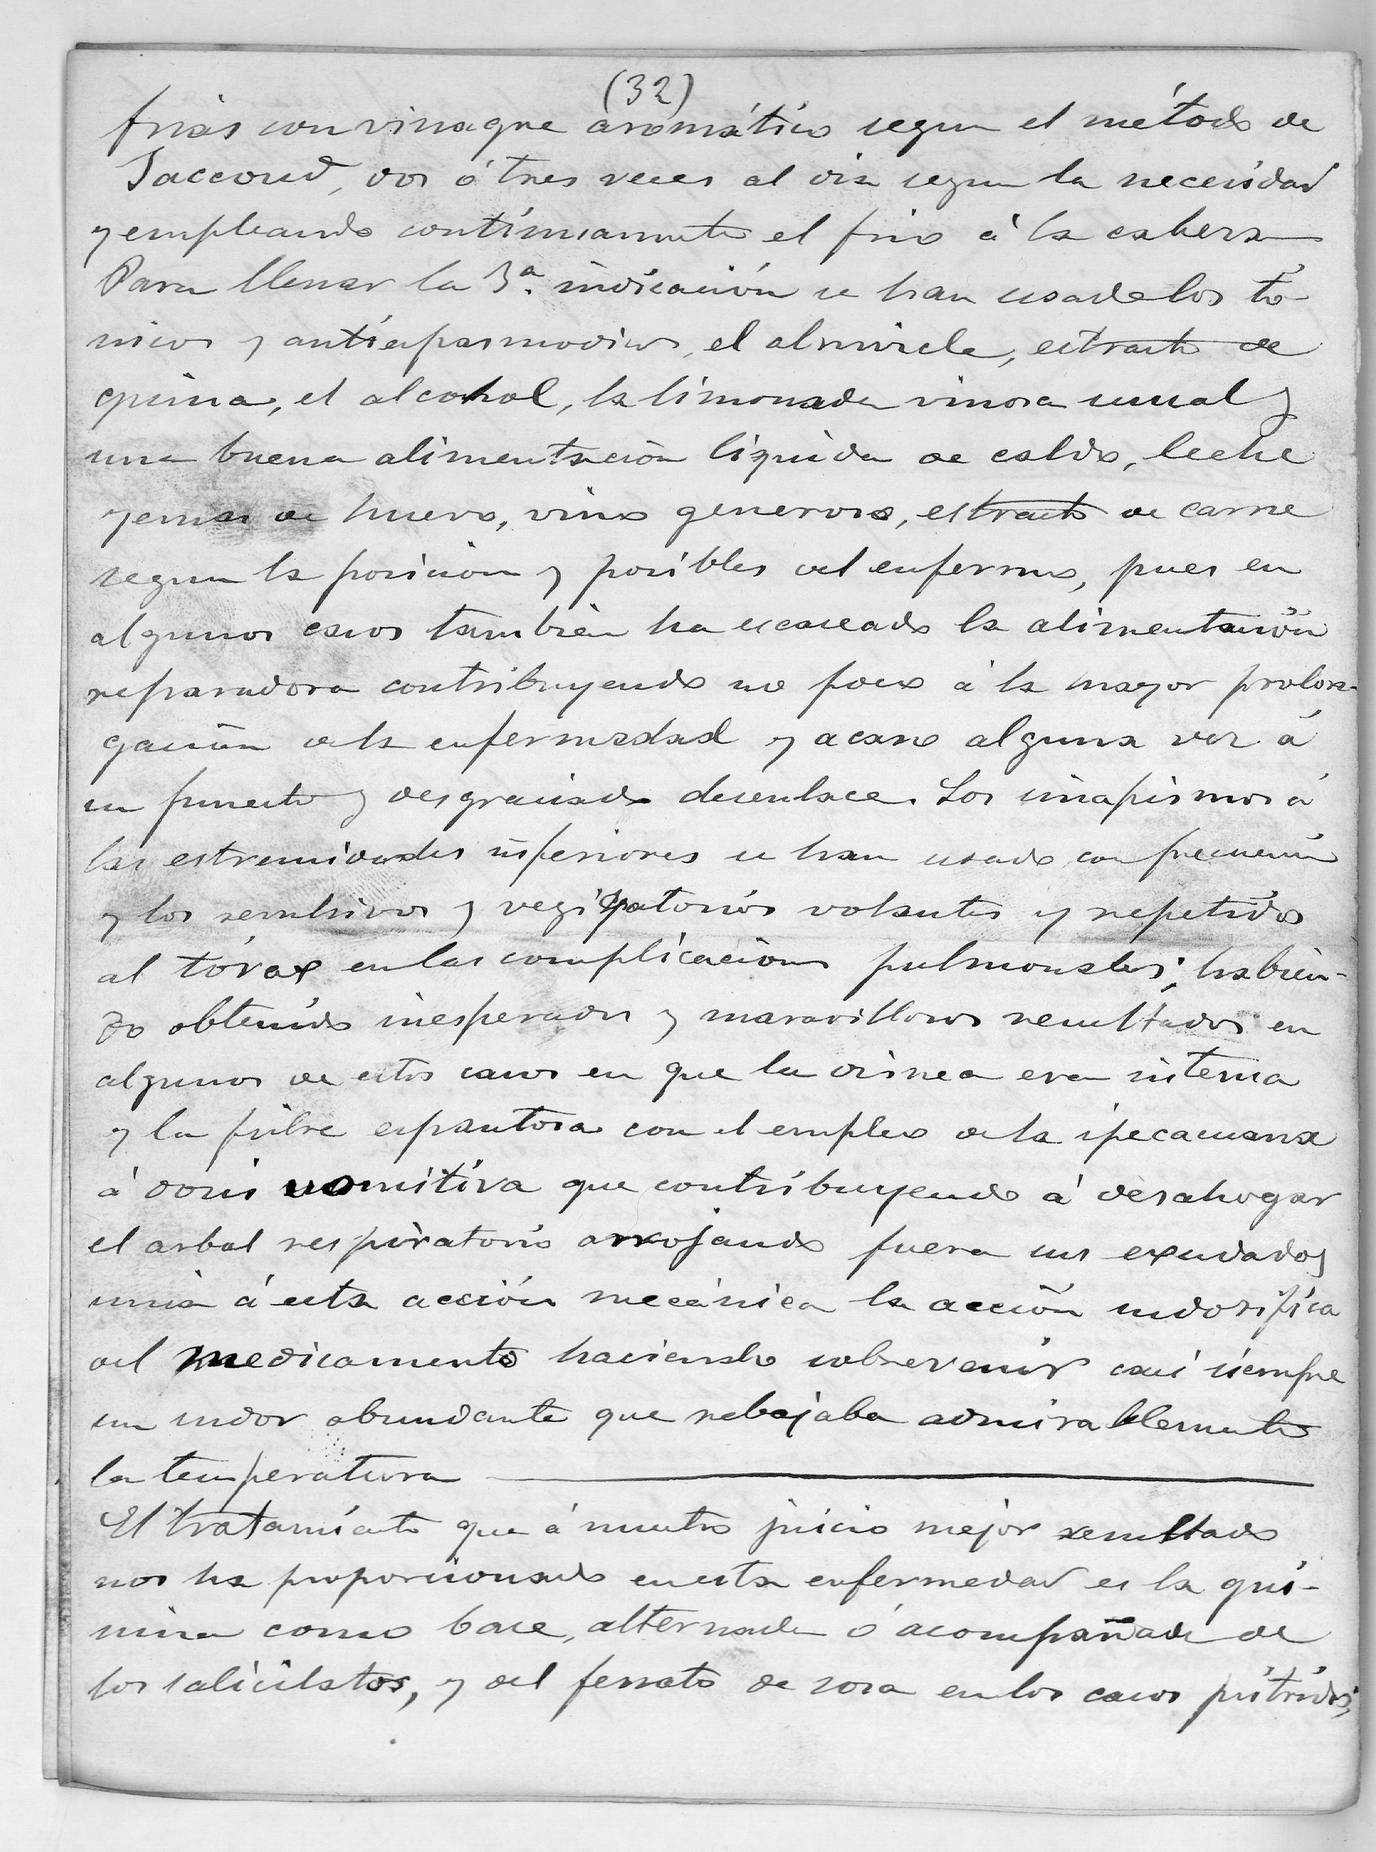 (32)
frias con vinagre aromático segun el método de
Jaccoud, dos ó tres veces al dia segun la necesidad
y empleando contínuamente el frio á la cabeza
Para llenar la 3ª. indicación se han usado los tó-
nicos y antiespasmodicos, el almizcle, estracto de
quina, el alcohol, la limonada vinosa usual y
una buena alimentación liquida de caldo, leche
yemas de huevo, vino generoso, estracto de carne
segun la posicion y posibles del enfermo, pues en
algunos casos tambien ha escaseado la alimentación
reparadora contribuyendo no poco á la mayor prolon-
gación de la enfermedad y acaso alguna vez á
un funesto y desgraciado desenlace. Los sinapismos á
las estremidades inferiores se han usado con frecuencia
y los revulsivos y vegigatorios volantes y repetidos
al tórax en las complicaciones pulmonales; habien-
do obtenido inesperados y maravillosos resultados en
algunos de estos casos en que la disnea era intensa
y la fiebre espantosa con el empleo de la ipecacuana
á dosis vomitiva que contribuyendo á desahogar
el arbol respiratorio arrojando fuera sus exudados
unia á esta acción mecánica la acción sudorifica
del medicamento haciendo sobrevenir casi siempre
un sudor abundante que rebajaba admirablemente
la temperatura
El tratamiento que á nuestro juicio mejor resultado
nos ha proporcionado en esta enfermedad es la qui-
nina como base, alternada ó acompañada de
los salicilatos, y del fenato de sosa en los casos pútridos;